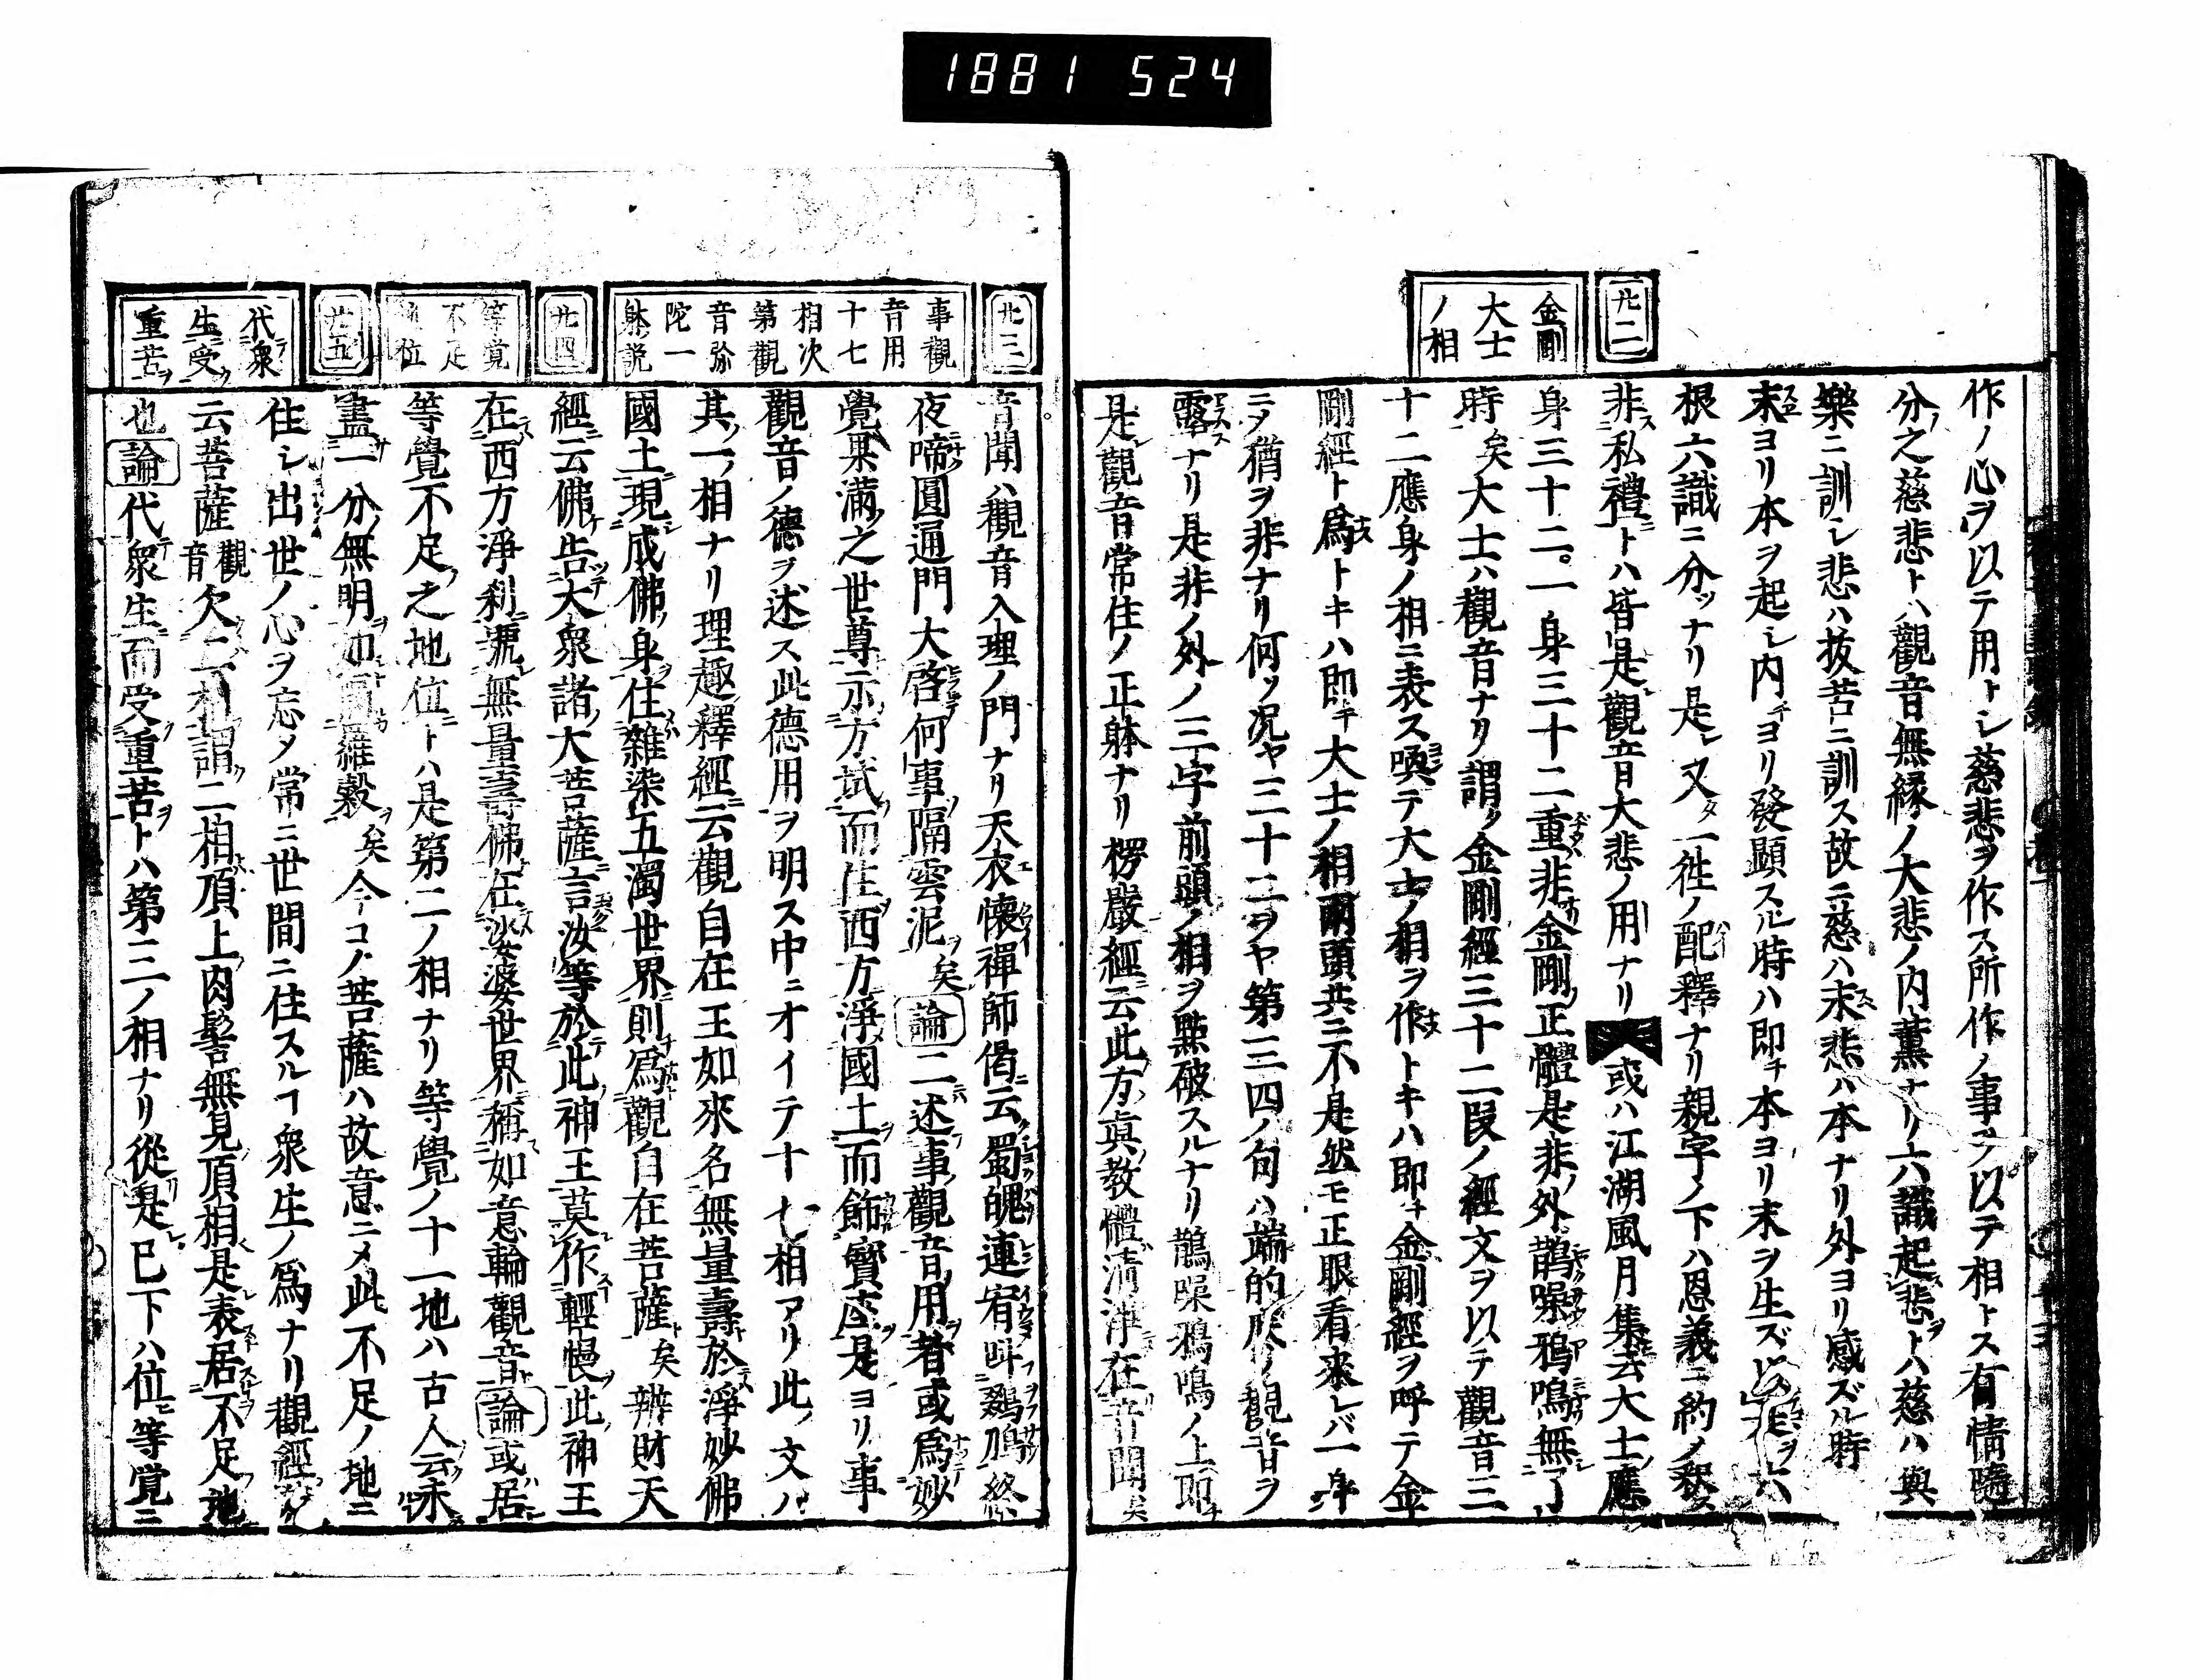 1881 524
廿二
金剛
大士
ノ相
作ノ心ヲ以テ用トシ慈悲ヲ作ス所作ノ事ヲ以テ相トス有情隨
分之慈悲トハ觀音無縁ノ大悲ノ内薫ナリ六識起悲トハ慈ハ與
樂ニ訓シ悲ハ抜苦ニ訓ス故ニ慈ハ末悲ハ本ナリ外ヨリ感ズル時
末ヨリ本ヲ起シ内ヨリ發顯スル時ハ即チ本ヨリ末ヲ生ズ
根六識ニ分ツナリ是レ又タ一徃ノ配釋ナリ親字ノ下ハ恩義ニ約ノ釈ス
非私禮トハ皆是觀音大悲ノ用ナリ 或ハ江湖風月集云大士應
身三十二。一身三十二重非金剛正體是非外鵲噪鴉鳴無了
時矣大士ハ觀音ナリ謂ク金剛經三十二段ノ經文ヲ以テ觀音三
十二應身ノ相ニ表ス喚テ大士ノ相ヲ作トキハ即チ金剛經ヲ呼テ金
剛經ト為トキハ即チ大士ノ相兩頭共ニ不是然モ正眼看来レバ一身
ニヲ猶ヲ非ナリ何ソ况ヤ三十二ヲヤ第三四ノ句ハ端的底ノ觀音ヲ
露ナリ是非ノ外ノ三字前頭ノ相ヲ點破スルナリ鵲噪鴉鳴ノ上即チ
是觀音常住ノ正躰ナリ楞嚴經云此方眞教體清淨在音聞矣
廿三
事觀
音用
十七
相次
第觀
音弥
陀一
躰説
廿四
等覚
不足
地位
廿五
代衆
生受
重苦
音聞ハ觀音入理ノ門ナリ天衣懐禪師偈云蜀魄連宵呌鵽鳭終
夜啼圓通門大啓何事隔雲泥矣論二述事觀音用者或為妙
覺果滿之世尊示方或而住西方淨國土而飾寳座是ヨリ事
觀音ノ德ヲ述ス此德用ヲ明ス中ニオイテ十七相アリ此ノ文ハ
其一ノ相ナリ理趣釋經云觀自在王如來名無量壽於淨妙佛
國土現成佛身住雜染五濁世界則為觀自在菩薩矣辨財天
經云佛告大衆諸大菩薩言汝等於此神王莫作輕慢此神王
在西方淨刹號無量壽佛在娑婆世界稱如意輪觀音論或居
等覺不足之地位トハ是第二ノ相ナリ等覺ノ十一地ハ古人云未
盡一分無明如隔羅縠矣今コノ菩薩ハ故意ニメ此不足ノ地ニ
住シ出世ノ心ヲ忘メ常ニ世間ニ住スルヿ衆生ノ為ナリ觀經
云菩薩觀音欠二相謂二相頂上肉髻無見頂相是表居不足地
也論代衆生而受重苦トハ第三ノ相ナリ從是已下ハ位等覚ニ